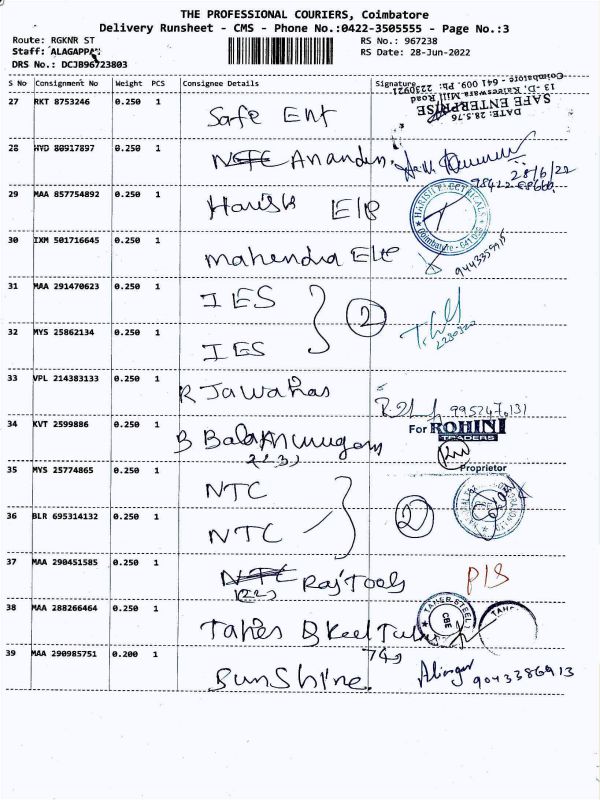 THE PROFESSIONAL COURIERS, Coimbatore
Delivery Runsheet - CMS - Phone No.:0422-3505555 - Page No.:3
Route: RGKNR ST
Staff: ALAGAPPAN
DRS No.: DCJB96723803
RS No.: 967238
RS Date: 28-Jun-2022
S No Consignment No Weight PCS Consignee Details Signature
Coimbatore - 641 009. Ph: 2230921
13 - D, Kaleeswara Mill Road
SAFE ENTERPRISE
DATE: 28.5.76
27 RKT 8753246 0.250 1 Safe Ent
28 HYD 80917897 0.250 1 NTC Anandan.
28/6/22
29 MAA 857754892 0.250 1 Harish Elp
HARISH ELECTRICALS
Coimbatore - 641
30 IXM 501716645 0.250 1 mahendra Elc
31 MAA 291470623 0.250 1 IES
2
32 MYS 25862134 0.250 1 IES
33 VPL 214383133 0.250 1 R Jawahar
34 KVT 2599886 0.250 1 B Balamurugan
For ROHINI
TRADERS
Proprietor
35 MYS 25774865 0.250 1 NTC
2
36 BLR 695314132 0.250 1 NTC
37 MAA 290451585 0.250 1 NTC Raj Tools
38 MAA 288266464 0.250 1 Taher B Keel Tulu
TAHER STEEL
CBE
TAHE
39 MAA 290985751 0.200 1 Sunshine.
9043386913